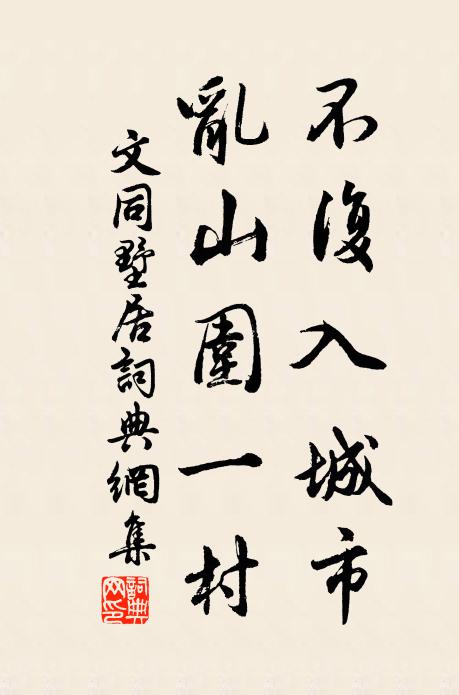 不復入城市
亂山圍一村
文同墅居詞典網集
詞典网印